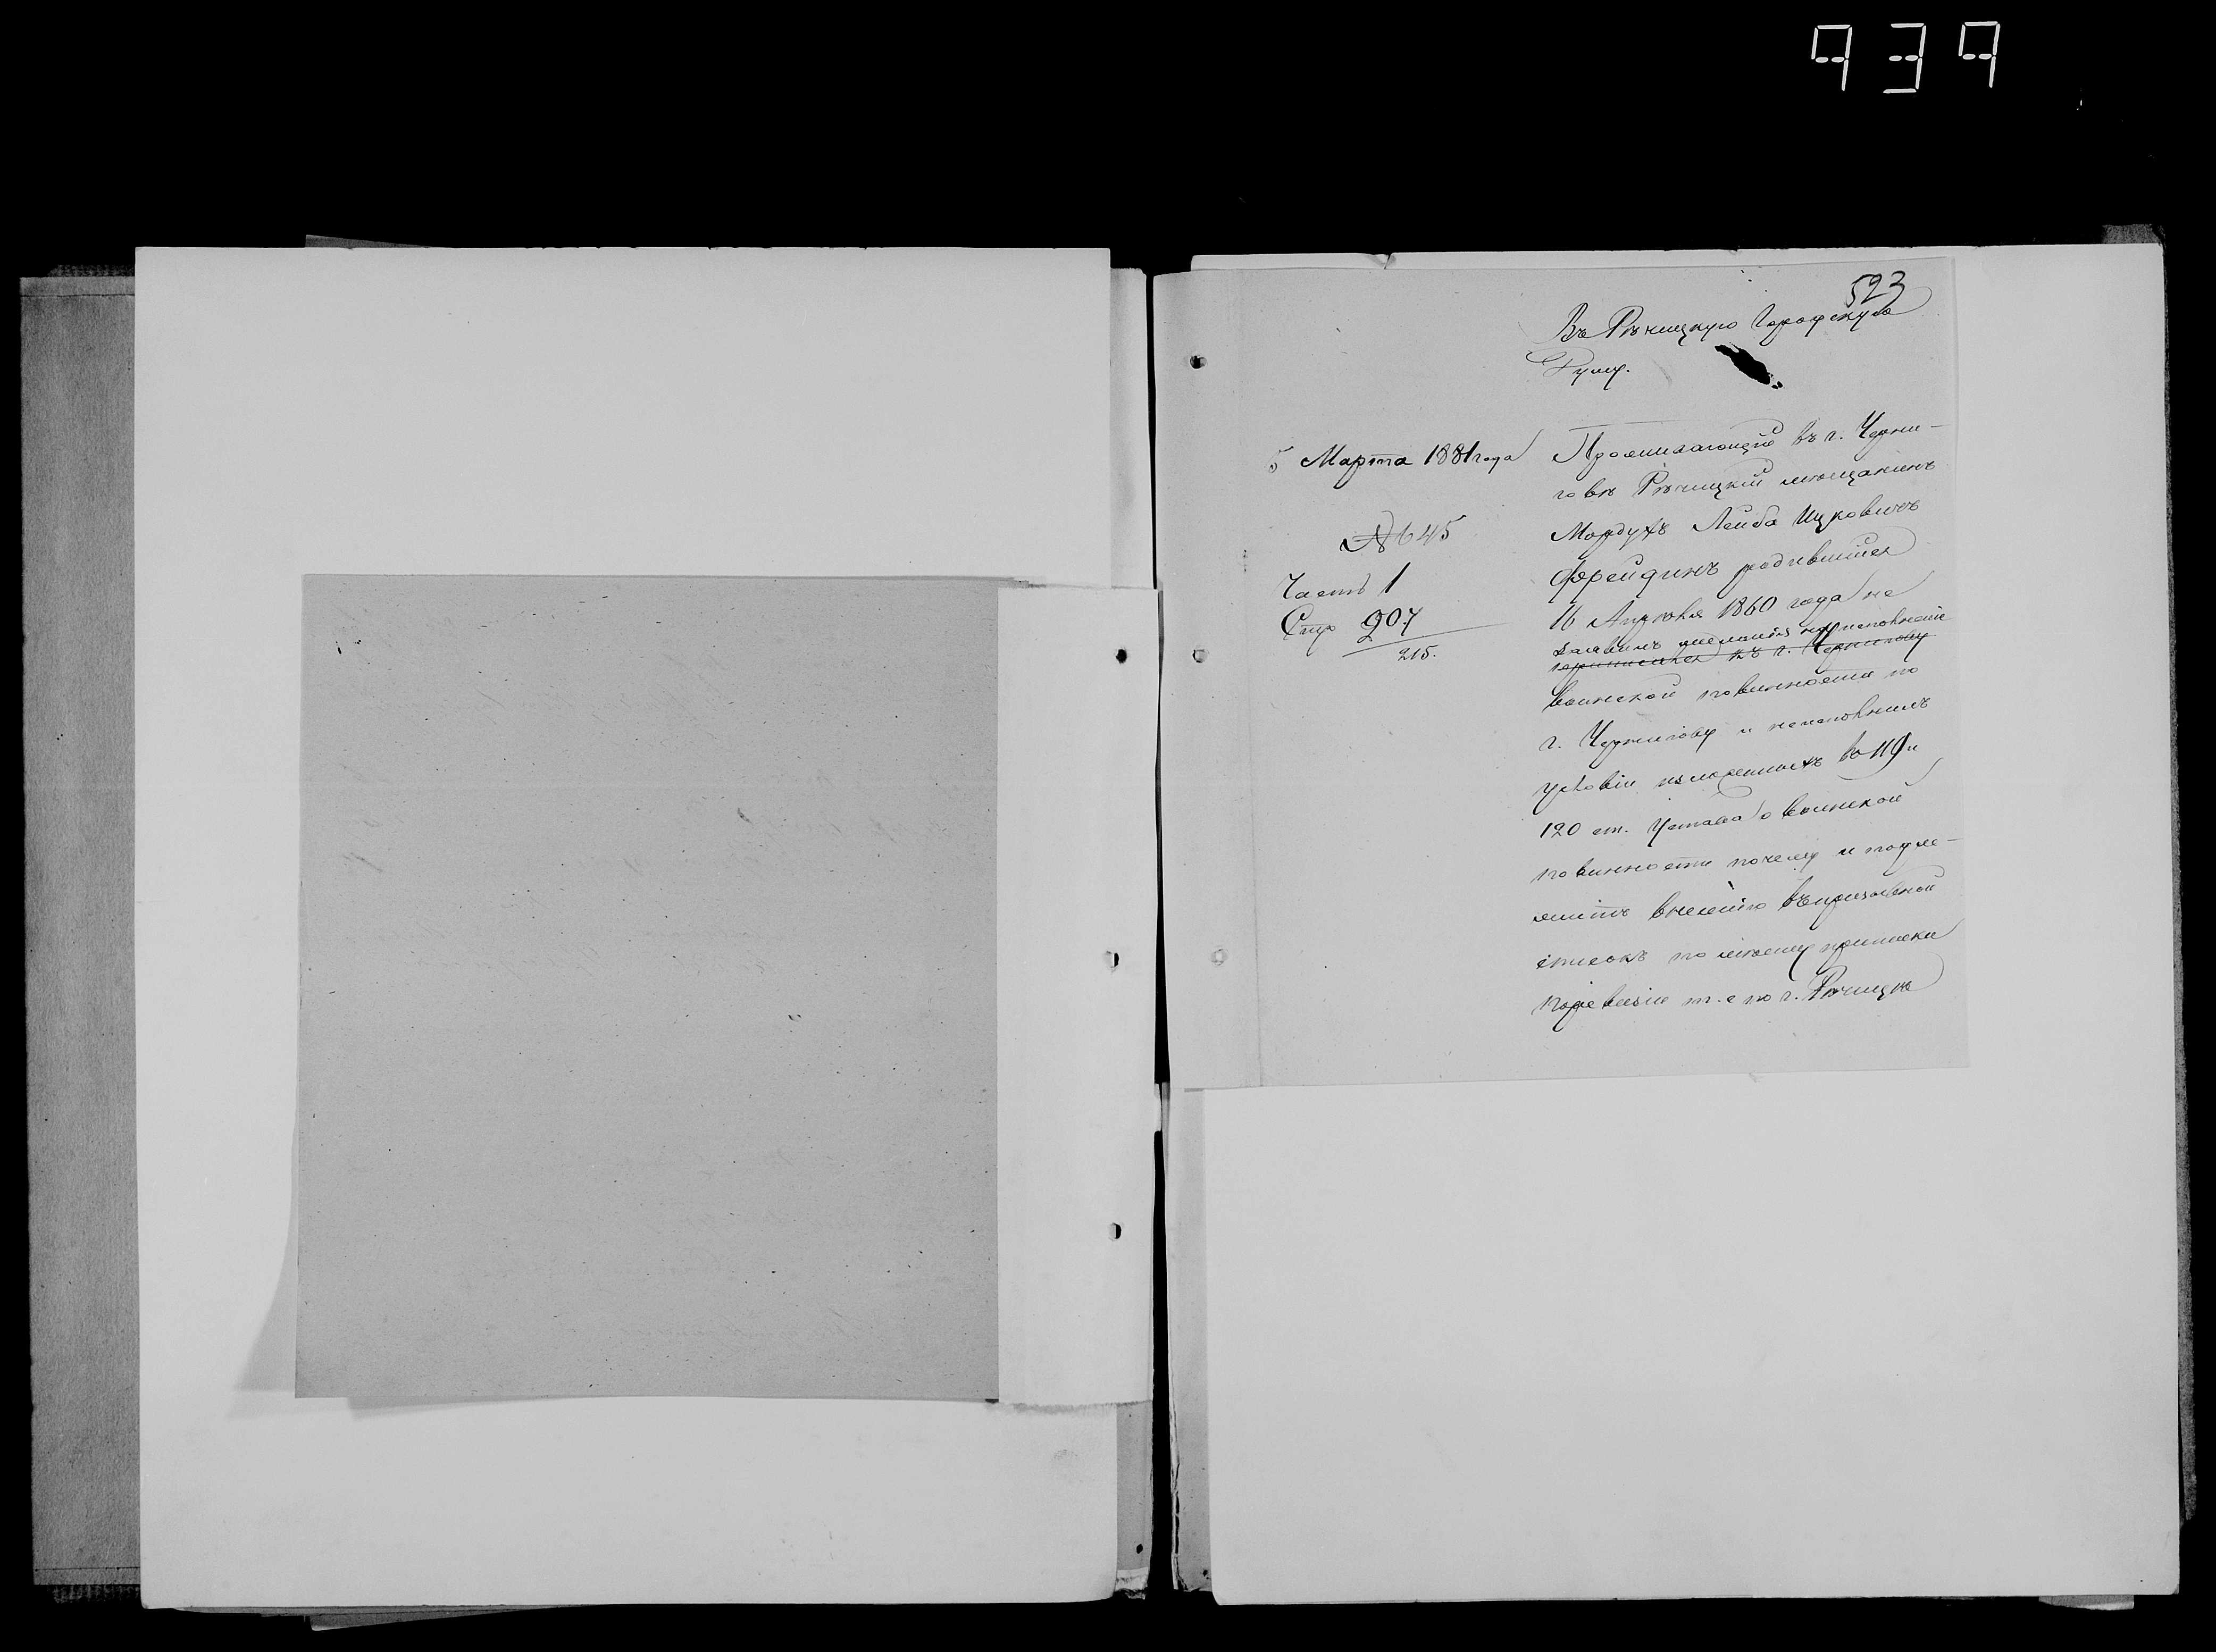 939
523
Въ Рѣчицкую Городскую
Думу.
5 Марта 1881 года
№ 645
Часть 1
Стр 207
215.
Проживающій въ г. Черни-
говѣ Рѣчицкій мѣщанинъ
Мордухъ Лейба Ицковичъ
Фрейдинъ родившійся
16 Апрѣля 1860 года не
заявилъ желанія исполненіе
приписался къ г. Чернигову
воинской повинности по
г. Чернигову и неисполнилъ
условій изложенныхъ въ 119 и
120 ст. Устава о воинской
повинности почему и подле-
житъ внесенію въ призывной
списокъ по мѣсту приписки
по ревизіи т. е по г. Рѣчицѣ